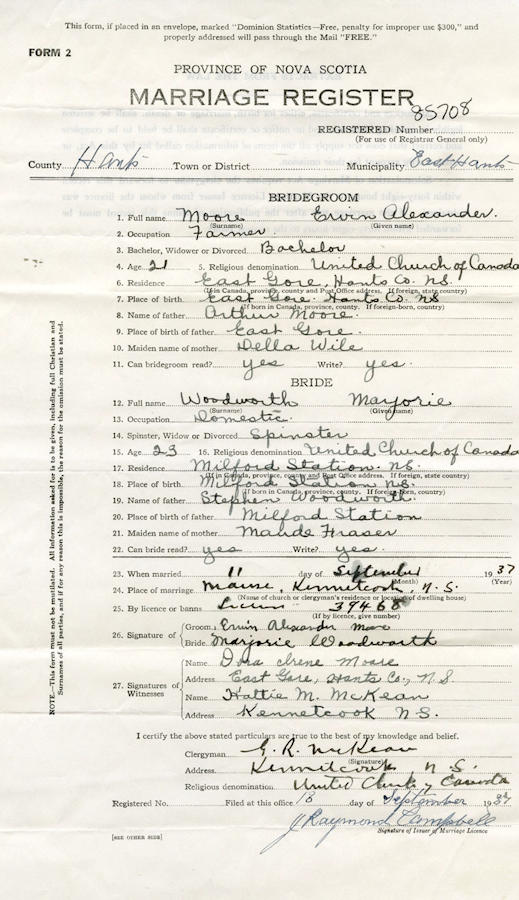 This form, if placed in an envelope, marked "Dominion Statistics—Free, penalty for improper use $300," and
properly addressed will pass through the Mail "FREE."
FORM 2
PROVINCE OF NOVA SCOTIA
MARRIAGE REGISTER
85708
REGISTERED Number
(For use of Registrar General only)
County Hants Town or District Municipality East Hants
BRIDEGROOM
1. Full name Moore Ervin Alexander.
(Surname) (Given name)
2. Occupation Farmer.
3. Bachelor, Widower or Divorced Bachelor
4. Age 21 5. Religious denomination United Church of Canada
6. Residence East Gore. Hants Co. NS.
(If in Canada, province, county and Post Office address. If foreign, state country)
7. Place of birth East Gore. Hants Co. NS
(If born in Canada, province, county. If foreign-born, country)
8. Name of father Arthur Moore.
9. Place of birth of father East Gore.
10. Maiden name of mother Della Wile
11. Can bridegroom read? yes Write? yes.
BRIDE
12. Full name Woodworth Marjorie
(Surname) (Given name)
13. Occupation Domestic.
14. Spinster, Widow or Divorced Spinster
15. Age 23 16. Religious denomination United Church of Canada
17. Residence Milford Station. NS.
(If in Canada, province, county and Post Office address. If foreign, state country)
18. Place of birth Milford Station NS.
(If born in Canada, province, county. If foreign-born, country)
19. Name of father Stephen Woodworth.
20. Place of birth of father Milford Station
21. Maiden name of mother Maude Fraser
22. Can bride read? yes Write? yes.
23. When married 11 day of September 1937
(Month) (Year)
24. Place of marriage Manse, Kennetcook, N.S.
(Name of church or clergyman's residence or location of dwelling house)
25. By licence or banns 39468
(If by licence, give number)
26. Signature of
Groom Ervin Alexander Moore
Bride Marjorie Woodworth
27. Signatures of Witnesses
Name Dora Irene Moore
Address East Gore, Hants Co., N.S.
Name Hattie M. McKean
Address Kennetcook N.S.
I certify the above stated particulars are true to the best of my knowledge and belief.
Clergyman G. R. McKean
(Signature)
Address Kennetcook N.S.
Religious denomination United Church, Canada
Registered No. Filed at this office 18 day of September 1937
J Raymond Campbell
Signature of Issuer of Marriage Licence
[SEE OTHER SIDE]
NOTE.—This form must not be mutilated. All information asked for is to be given, including full Christian and
Surnames of all parties, and if for any reason this is impossible, the reason for the omission must be stated.